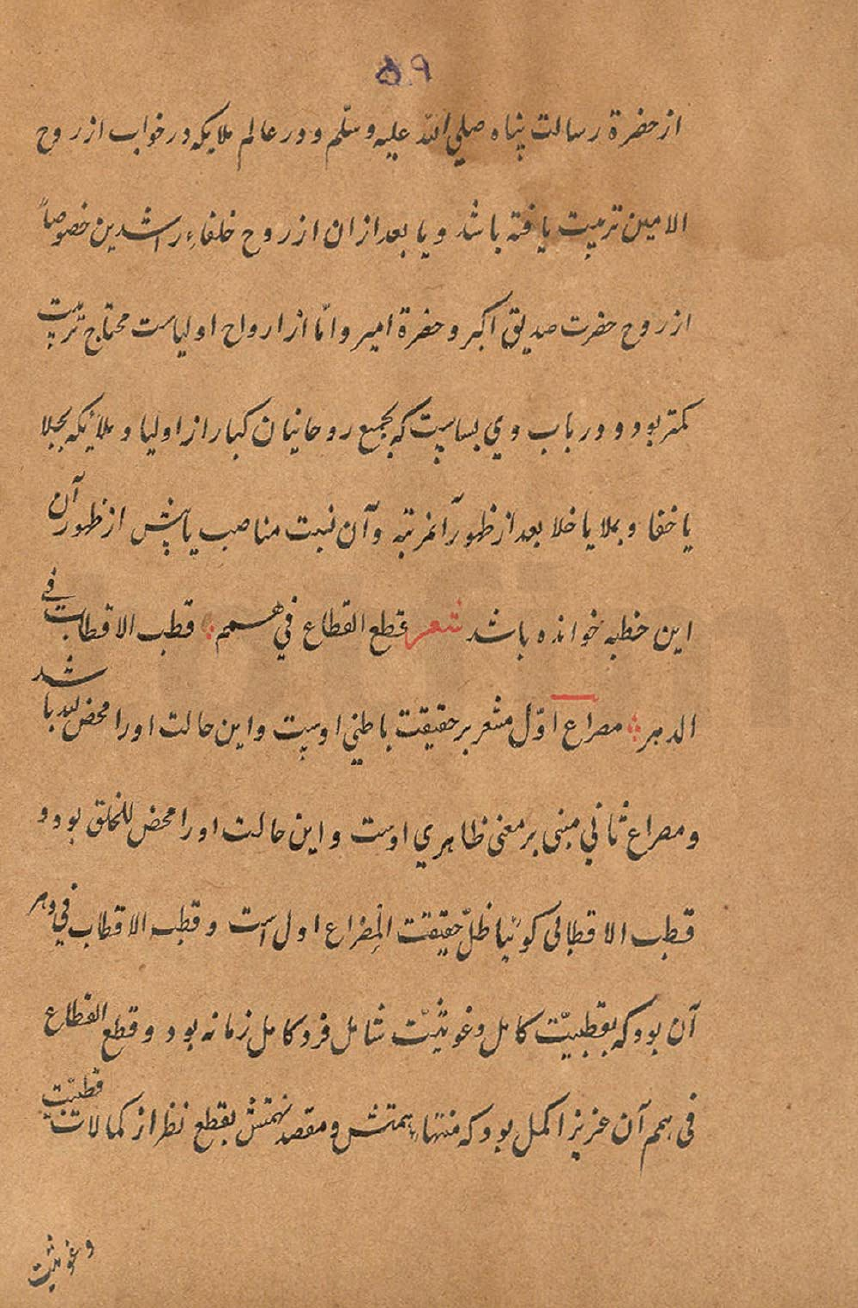 ۵۹
از حضرة رسالت پناه صلي الله عليه وسلّم و در عالم ملايكه در خواب از روح
الامين تربيت يافته باشد و يا بعد ازان از روح خلفاءِ راشدين خصوصاً
از روح حضرت صديق اكبر و حضرة امير و امّا از ارواح اولياست محتاج تربيت
كمتر بود و در باب وي بساست كه بجميع روحانيان كبار از اوليا و ملائكه بجلا
يا خفا و بملا يا خلا بعد از ظهور آنمرتبه و آن نسبت مناصب يا پيش از ظهور آن
اين خطبه خوانده باشد شعر قطع القطاع في همم قطب الاقطاب في
الدهر مصراع اوّل مشعر بر حقيقت باطني اوست و اين حالت اورا محض لله باشد
و مصراع ثاني مبني بر معني ظاهري اوست و اين حالت اورا محض للخلق بود و
قطب الاقطابي گوئيا ظلّ حقيقت المصراع اول است و قطب الاقطاب في دهر
آن بود كه بقطبيّت كامل و غوثيّت شامل فرد كامل زمانه بود و قطع القطاع
في همم آن عزيز اكمل بود كه منتهاءِ همتش و مقصد نهمتش بقطع نظر از كمالات قطبيّت
و غوثيت